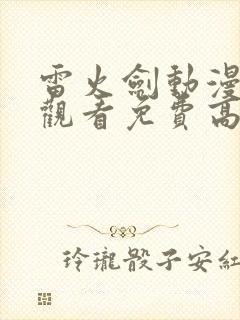 雷火劍動漫
觀看免費高
玲瓏骰子安紅